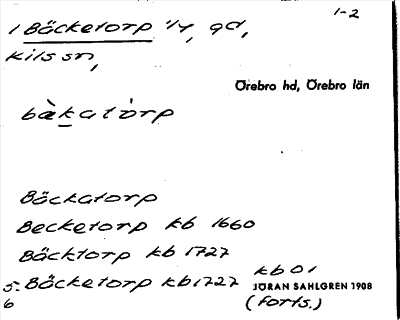 1-2
1 Bäcketorp 1/4, gd,
Kils sn,
Örebro hd, Örebro län
bàkatòrp
Bäckatorp
Becketorp kb 1660
Bäcktorp kb 1727
5- Bäcketorp kb 1727 kb 01
6 JÖRAN SAHLGREN 1908
(forts.)